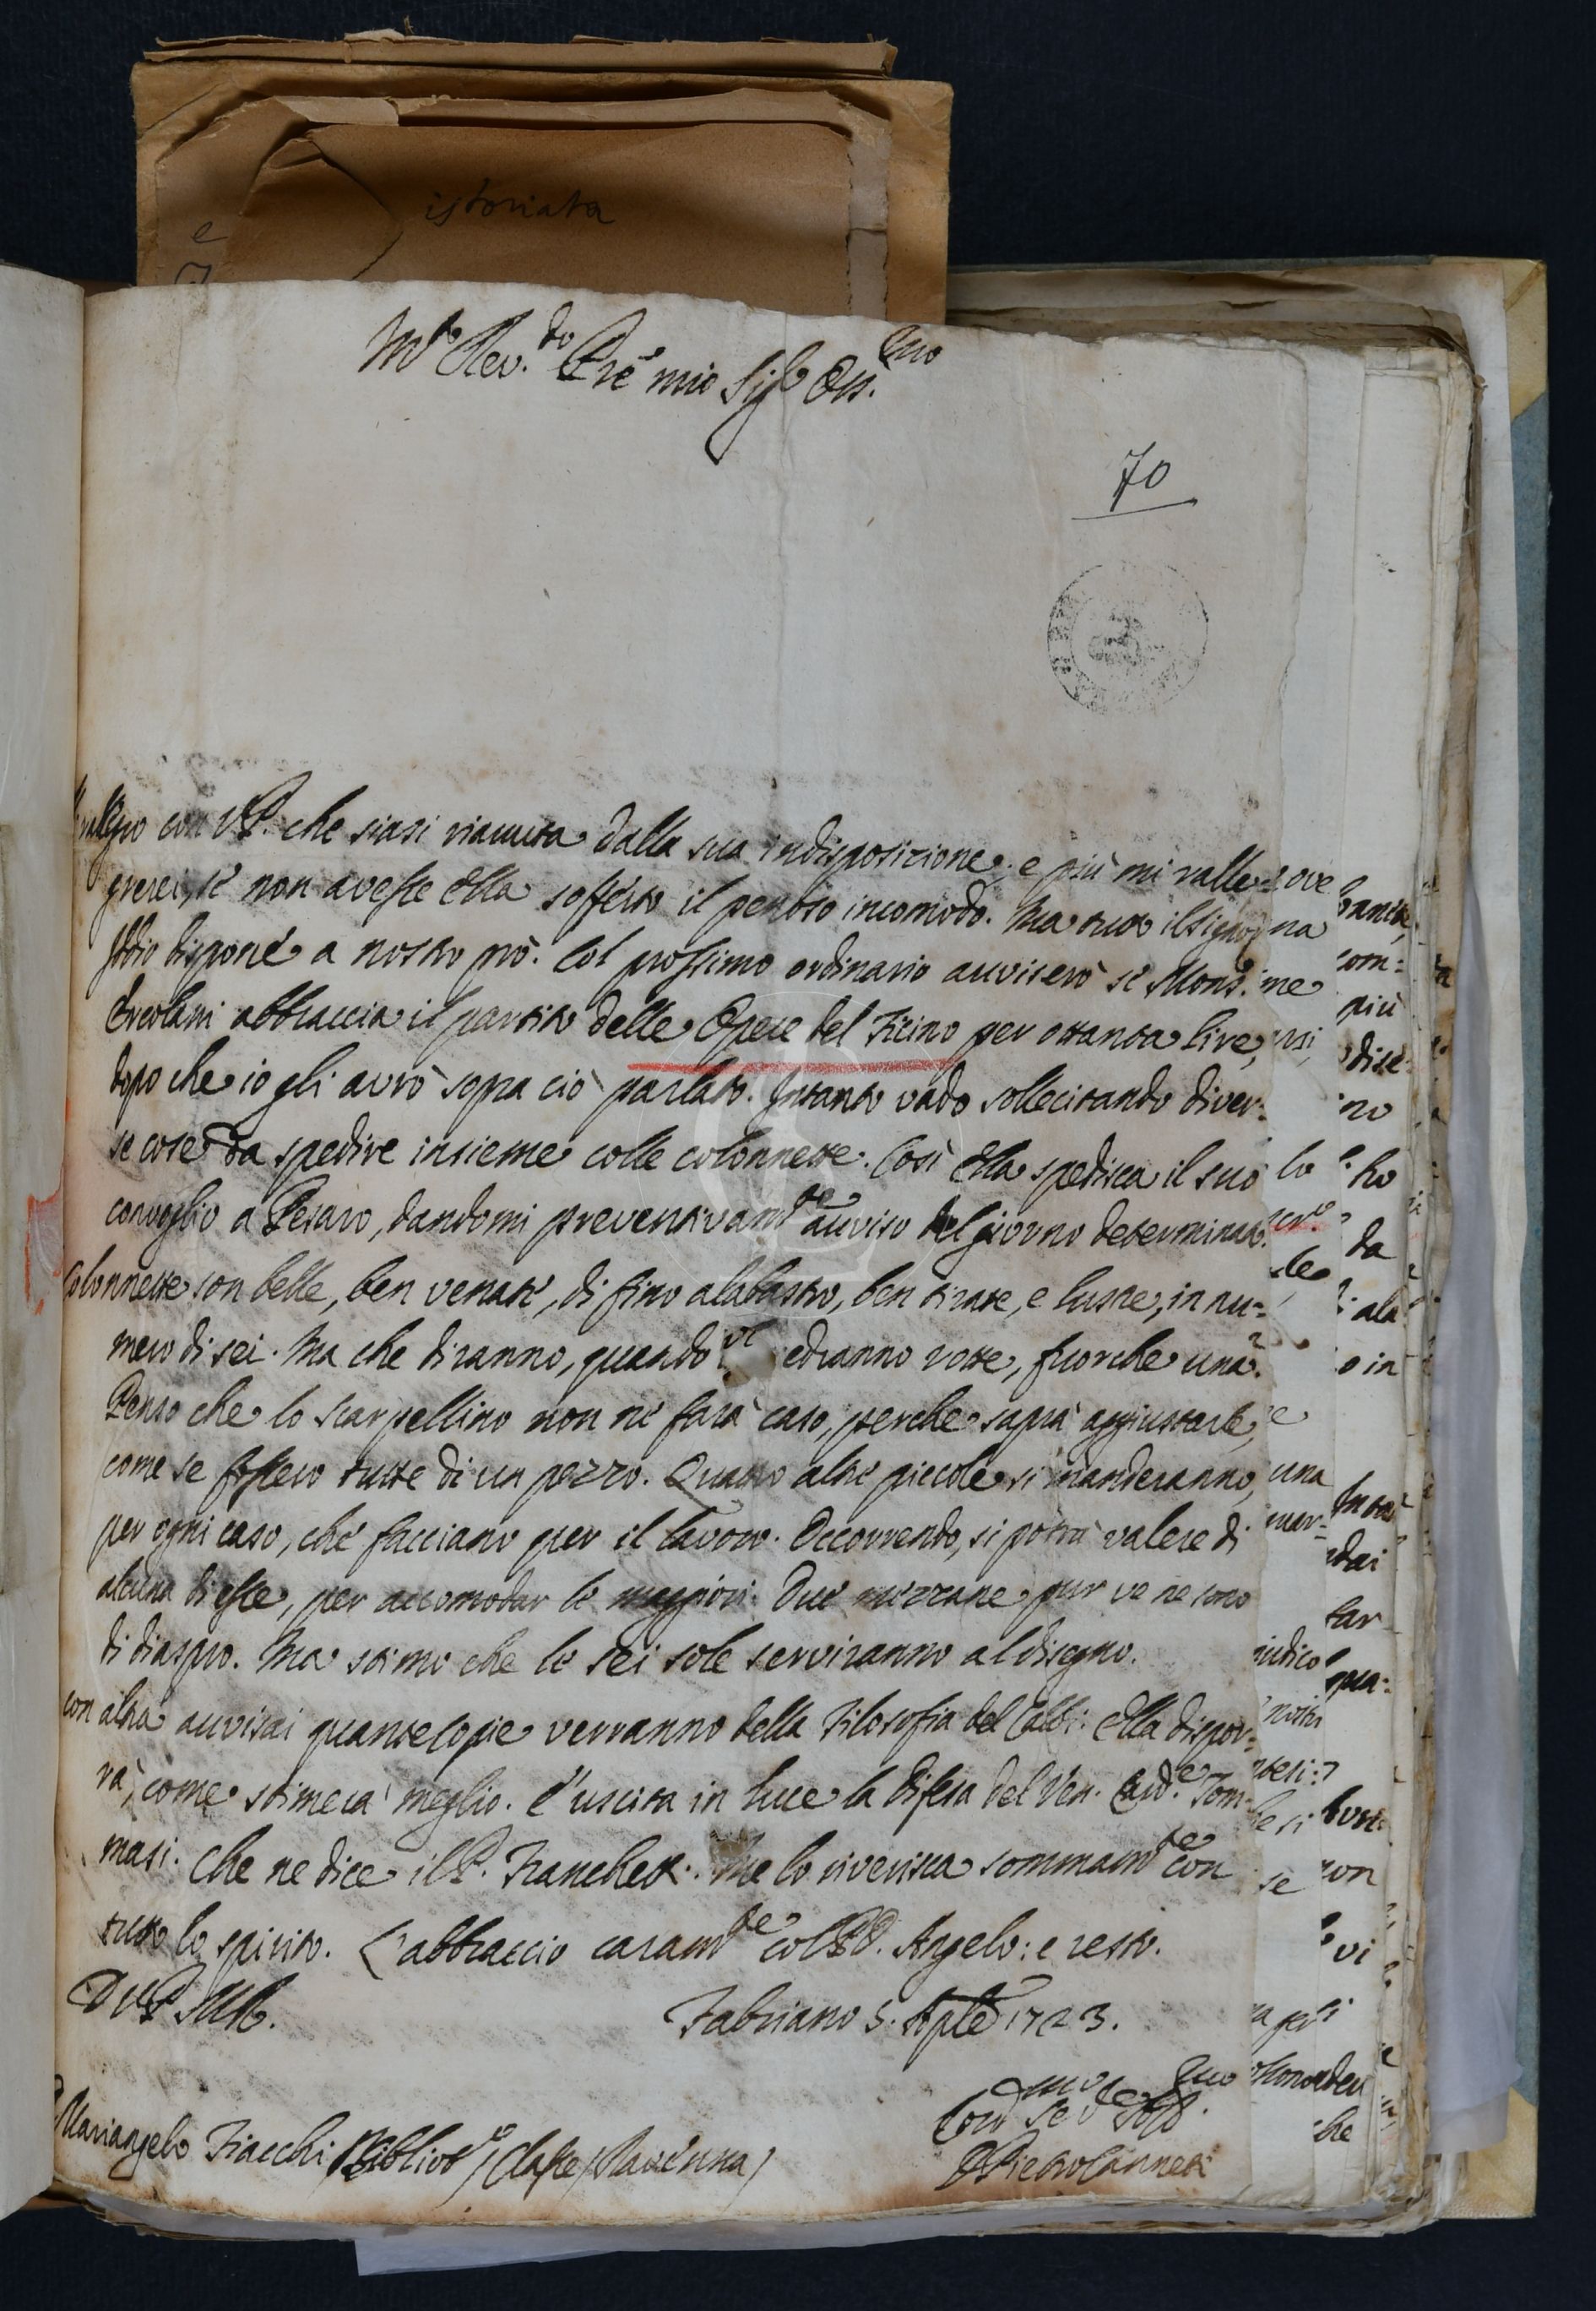 istoriata
e
M.to Rev.do Pre mio Sig.r Oss.mo
70
rallegro con V.P. che siasi riavuta dalla sua indisposizione, e più mi ralle=
grerei, se non avesse Ella sofferto il penoso incomodo. Ma tutto il Signor
Iddio dispone a nostro prò. Col prossimo ordinario avviserò se Mons.r
Ercolani abbraccia il partito delle Opere del Ficino per ottanta lire,
dopo che io gli avrò sopra ciò parlato. Intanto vado sollecitando diver=
se cose da spedire insieme colle colonnette. Così Ella spedisca il suo
convoglio a Pesaro, dandomi preventivam.te avviso del giorno determinato.
Colonnette son belle, ben venate, di fino alabastro, ben tirate, e lustre, in nu=
mero di sei. Ma che diranno, quando le vedranno rotte, fuorche una?
Penso che lo scarpellino non ne farà caso, perche saprà aggiustarle,
come se fossero tutte di un pezzo. Quattro altre piccole si manderanno,
per ogni caso, che facciano per il lavoro. Occorrendo, si potrà valere di
alcuna di esse, per accomodar le maggiori. Due mezzane pur ve ne sono
di diaspro. Ma stimo che le sei sole serviranno al disegno.
Con altra avvisai quante copie verranno della Filosofia del Calbi: Ella dispor=
rà, come stimerà meglio. E' uscita in luce la difesa del Ven. Card.e Tom=
masi. Che ne dice il P. Franchetti. Me lo riverisca sommam.te con
tutto lo spirito. L'abbraccio caram.te col P.D. Angelo: e resto.
D.V.P. M.R.
Fabriano 5. Sett.e 1723.
Mariangelo Fiacchi Bibliot.o / Classe / Ravenna /
D. Pietro Canneti